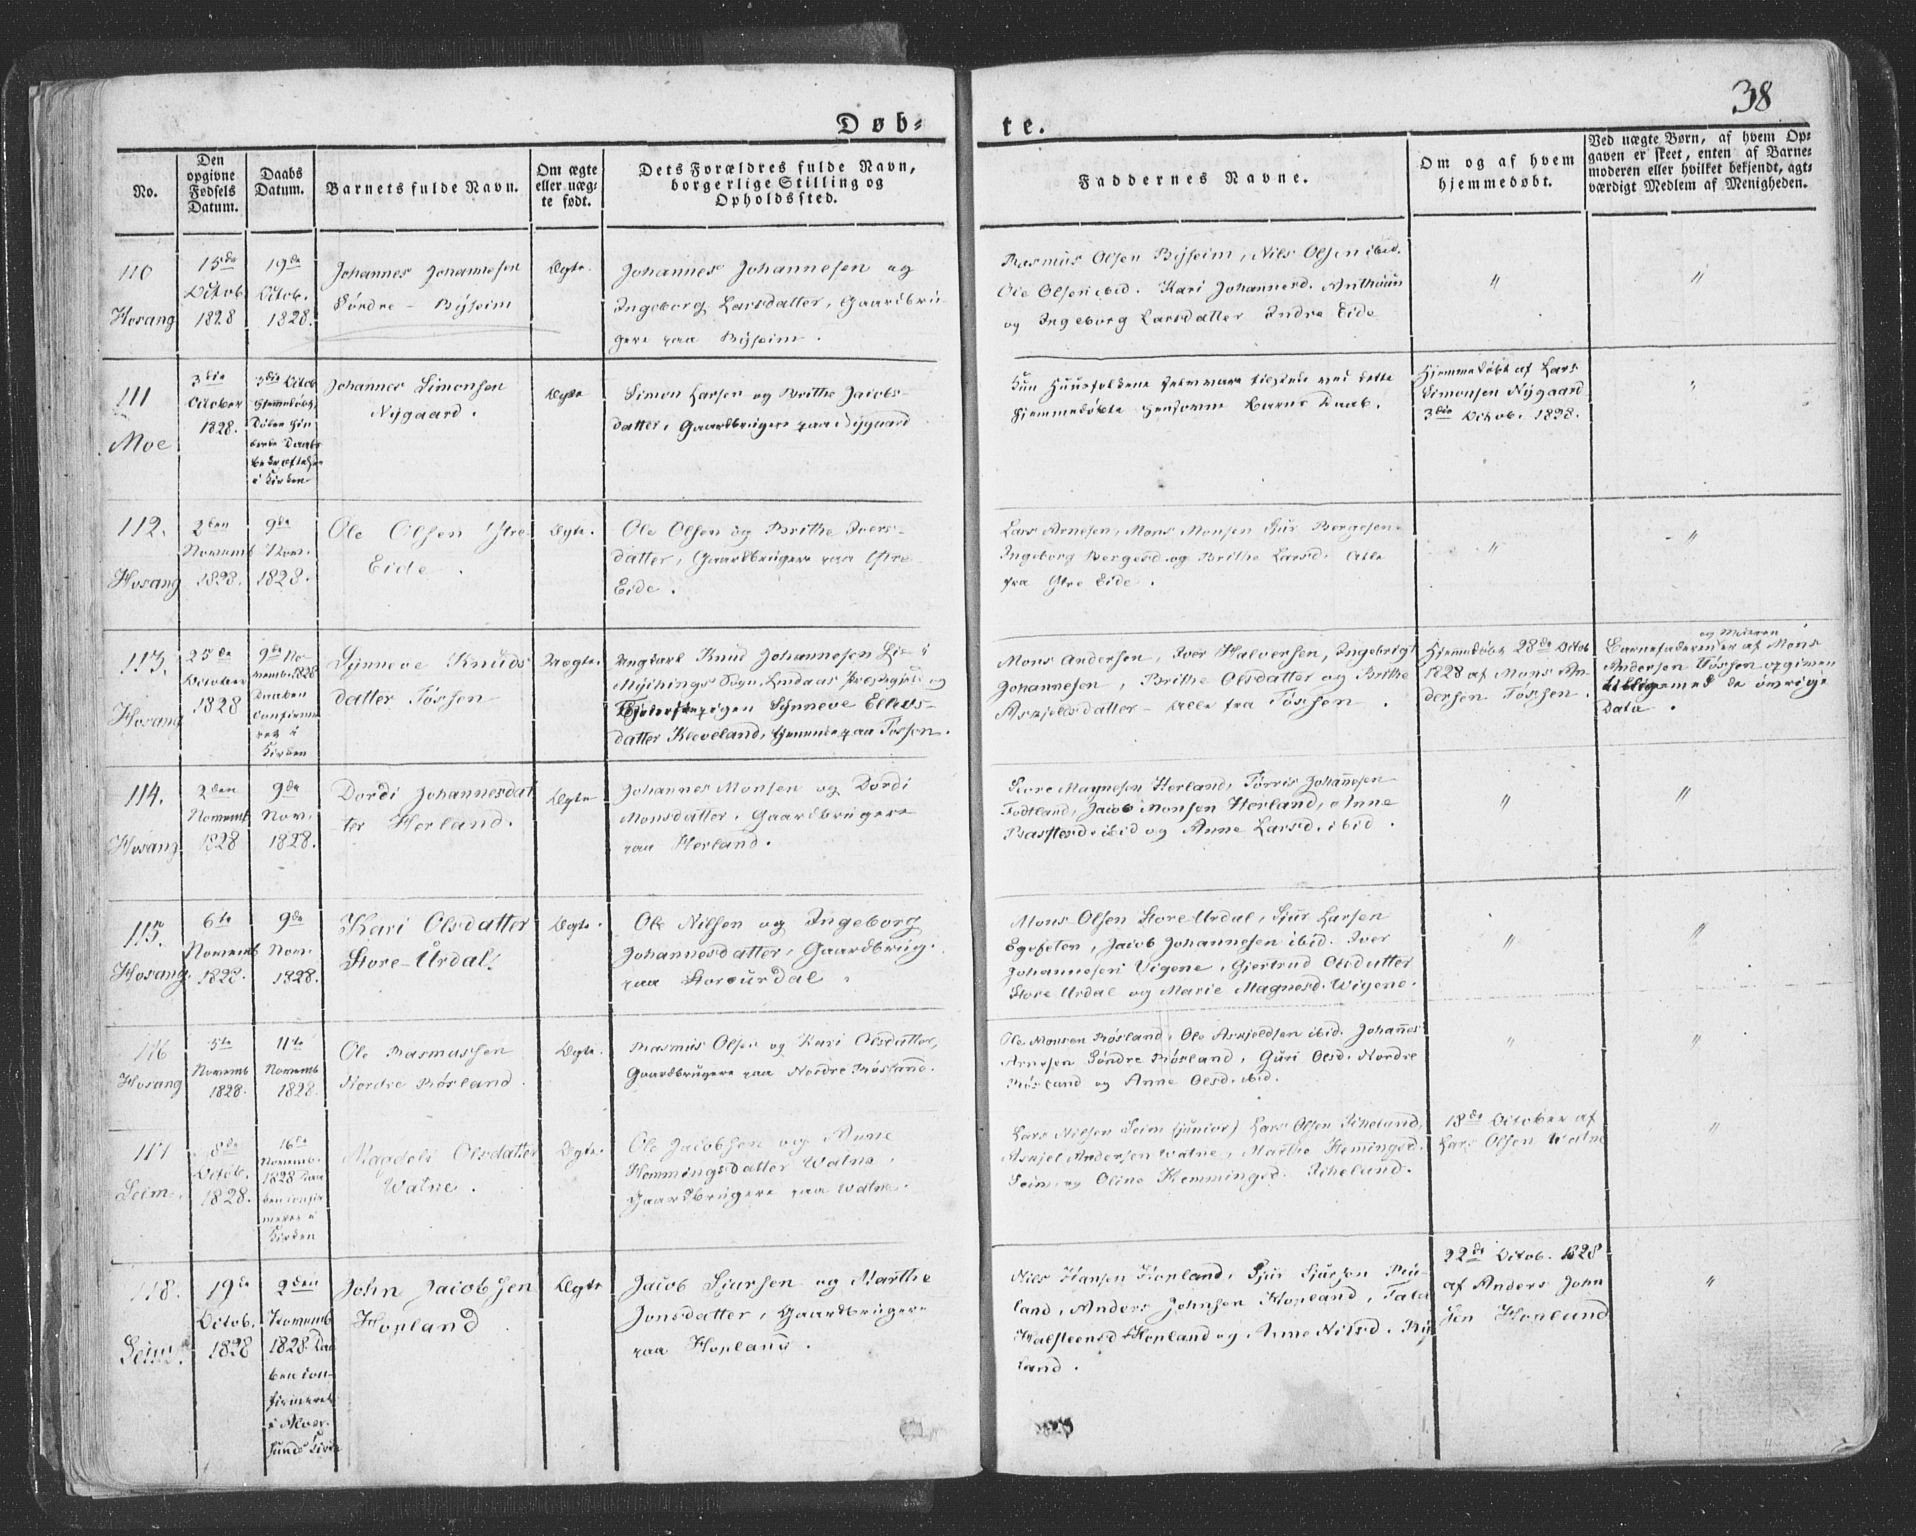 38
Døb-
te.
No.
Den
opgivne
Fødsels
Datum.
Daabs
Datum.
Barnets fulde Navn.
Om ægte
eller uæg-
te født.
Dets Forældres fulde Navn,
borgerlige Stilling og
Opholdssted.
Faddernes Navne.
Om og af hvem
hjemmedøbt.
Ved uægte Børn, af hvem Op-
gaven er skeet, enten af Barne-
moderen eller hvilket bekjendt, agt-
værdigt Medlem af Menigheden.
110
Hosang
15de
Octob.
1828
19de
Octob.
1828.
Johannes Johannesen
Søndre - Bysheim
Ægte.
Johannes Johannesen og
Ingeborg Larsdatter, Gaardbru-
gere paa Bysheim.
Rasmus Olsen Bysheim, Nils Olsen ibid.
Ole Olsen ibid. Kari Johannesd.
og Ingeborg Larsdatter Indre Eide
"
"
111
Moe
3die
October
1828.
3die Octob
hjemmedøbt,
Daabs
bekræftelse
i Kirken
Johannes Simonsen
Nygaard.
Ægte
Simon Larsen og Brithe Jacobs-
datter, Gaardbrugere paa Nygaard
Kun Huusfolkene vare tilstede ved dette
hjemmedøbte Barns Daab.
Hjemmedøbt af Lars
Simonsen Nygaard
3die Octob. 1828.
"
112.
Hosang
2den
Novemb
1828.
9de
Nov.
1828.
Ole Olsen Ytre
Eide.
Ægte.
Ole Olsen og Brithe Ivers-
datter, Gaardbrugere paa Ytre
Eide.
Lars Arnesen, Mons Monsen Sjur Bergesen
Ingeborg Bergesd. og Brithe Larsd. Alle
fra Ytre Eide.
"
"
113.
Hosang
25de
October
1828
9de No-
vemb. 1828
Daaben
Confirme-
ret i
Kirken
Synneve Knuds
datter Tøssen
Uægte.
Ungkarl Knud Johannesen Lie i
Myhings Sogn, Lindaas Præstegjeld og
Synneve Ellevs-
datter Kleveland, tjenende paa Tøssen.
Mons Andersen, Iver Halversen, Ingebrigt
Johannesen, Brithe Olsdatter og Brithe
Askjellsdatter - Alle fra Tøssen.
Hjemmedøbt 28de Octob
1828 af Mons An-
dersen Tøssen.
og Moderen
Barnefaderen er af Mons
Andersen Tøssen opgiven
tilligemed de øvrige
Data.
114.
Hosang
2den
Novemb
1828
9de
Nov.
1828.
Dordi Johannesdat
ter Herland.
Ægte
Johannes Monsen og Dordi
Monsdatter, Gaardbrugere
paa Herland.
Store Magnesen Herland, Tørris Johannesen
Fodtland, Jacob Monsen Herland, Anne
ibid og Anne Larsd. ibid.
"
"
115.
Hosang
6te
Novemb
1828.
9de
Nov.
1828.
Kari Olsdatter
Store-Urdal.
Ægte.
Ole Nilsen og Ingeborg
Johannesdatter, Gaardbrug.
paa Storeurdal.
Mons Olsen Store Urdal, Sjur Larsen
Egefeten, Jacob Johannesen ibid. Iver
Johannesen Vigene, Gjertrud Olsdatter
Store Urdal og Marie Magnesd. Wigene.
"
"
116
Hosang
5te
Novemb
1828.
11te
Novemb
1828.
Ole Rasmussen
Nordre Røsland.
Ægte.
Rasmus Olsen og Kari Olsdatter,
Gaardbrugere paa Nordre Røsland.
Ole Monsen Røsland, Ole Askjeldsen ibid. Johannes
Arnesen Søndre Røsland, Guri Olsd. Nordre
Røsland og Anne Olsd. ibid.
"
"
117
Seim.
8de
Octob.
1828.
16de
Novemb.
1828 Daa
ben confir
meret i
Kirken
Magdeli Olsdatter
Watne.
Ægte.
Ole Jacobsen og Anne
Hemmingsdatter Watne,
Gaardbrugere paa Watne.
Lars Nilsen Seim (junior) Lars Olsen Ikeland,
Askjel Andersen Watne, Marthe Hemingsd.
Seim og Oline Hemmingsd. Ikeland.
18de October af
Lars Olsen Watne
"
118.
Seim.
19de
Octob.
1828
2den
Novemb
1828. Daa
ben con-
firmeret
i Alver-
sunds Kirke
John Jacobsen
Hopland
Ægte
Jacob Sjursen og Marthe
Jonsdatter, Gaardbrugere
paa Hopland.
Nils Hansen Hopland, Sjur Sjursen Ry-
land, Anders Johnsen Hopland,
Halsteensd Hopland og Anne Nilsd. Ry
land.
22de Octob. 1828
af Anders John
sen Hopland
"